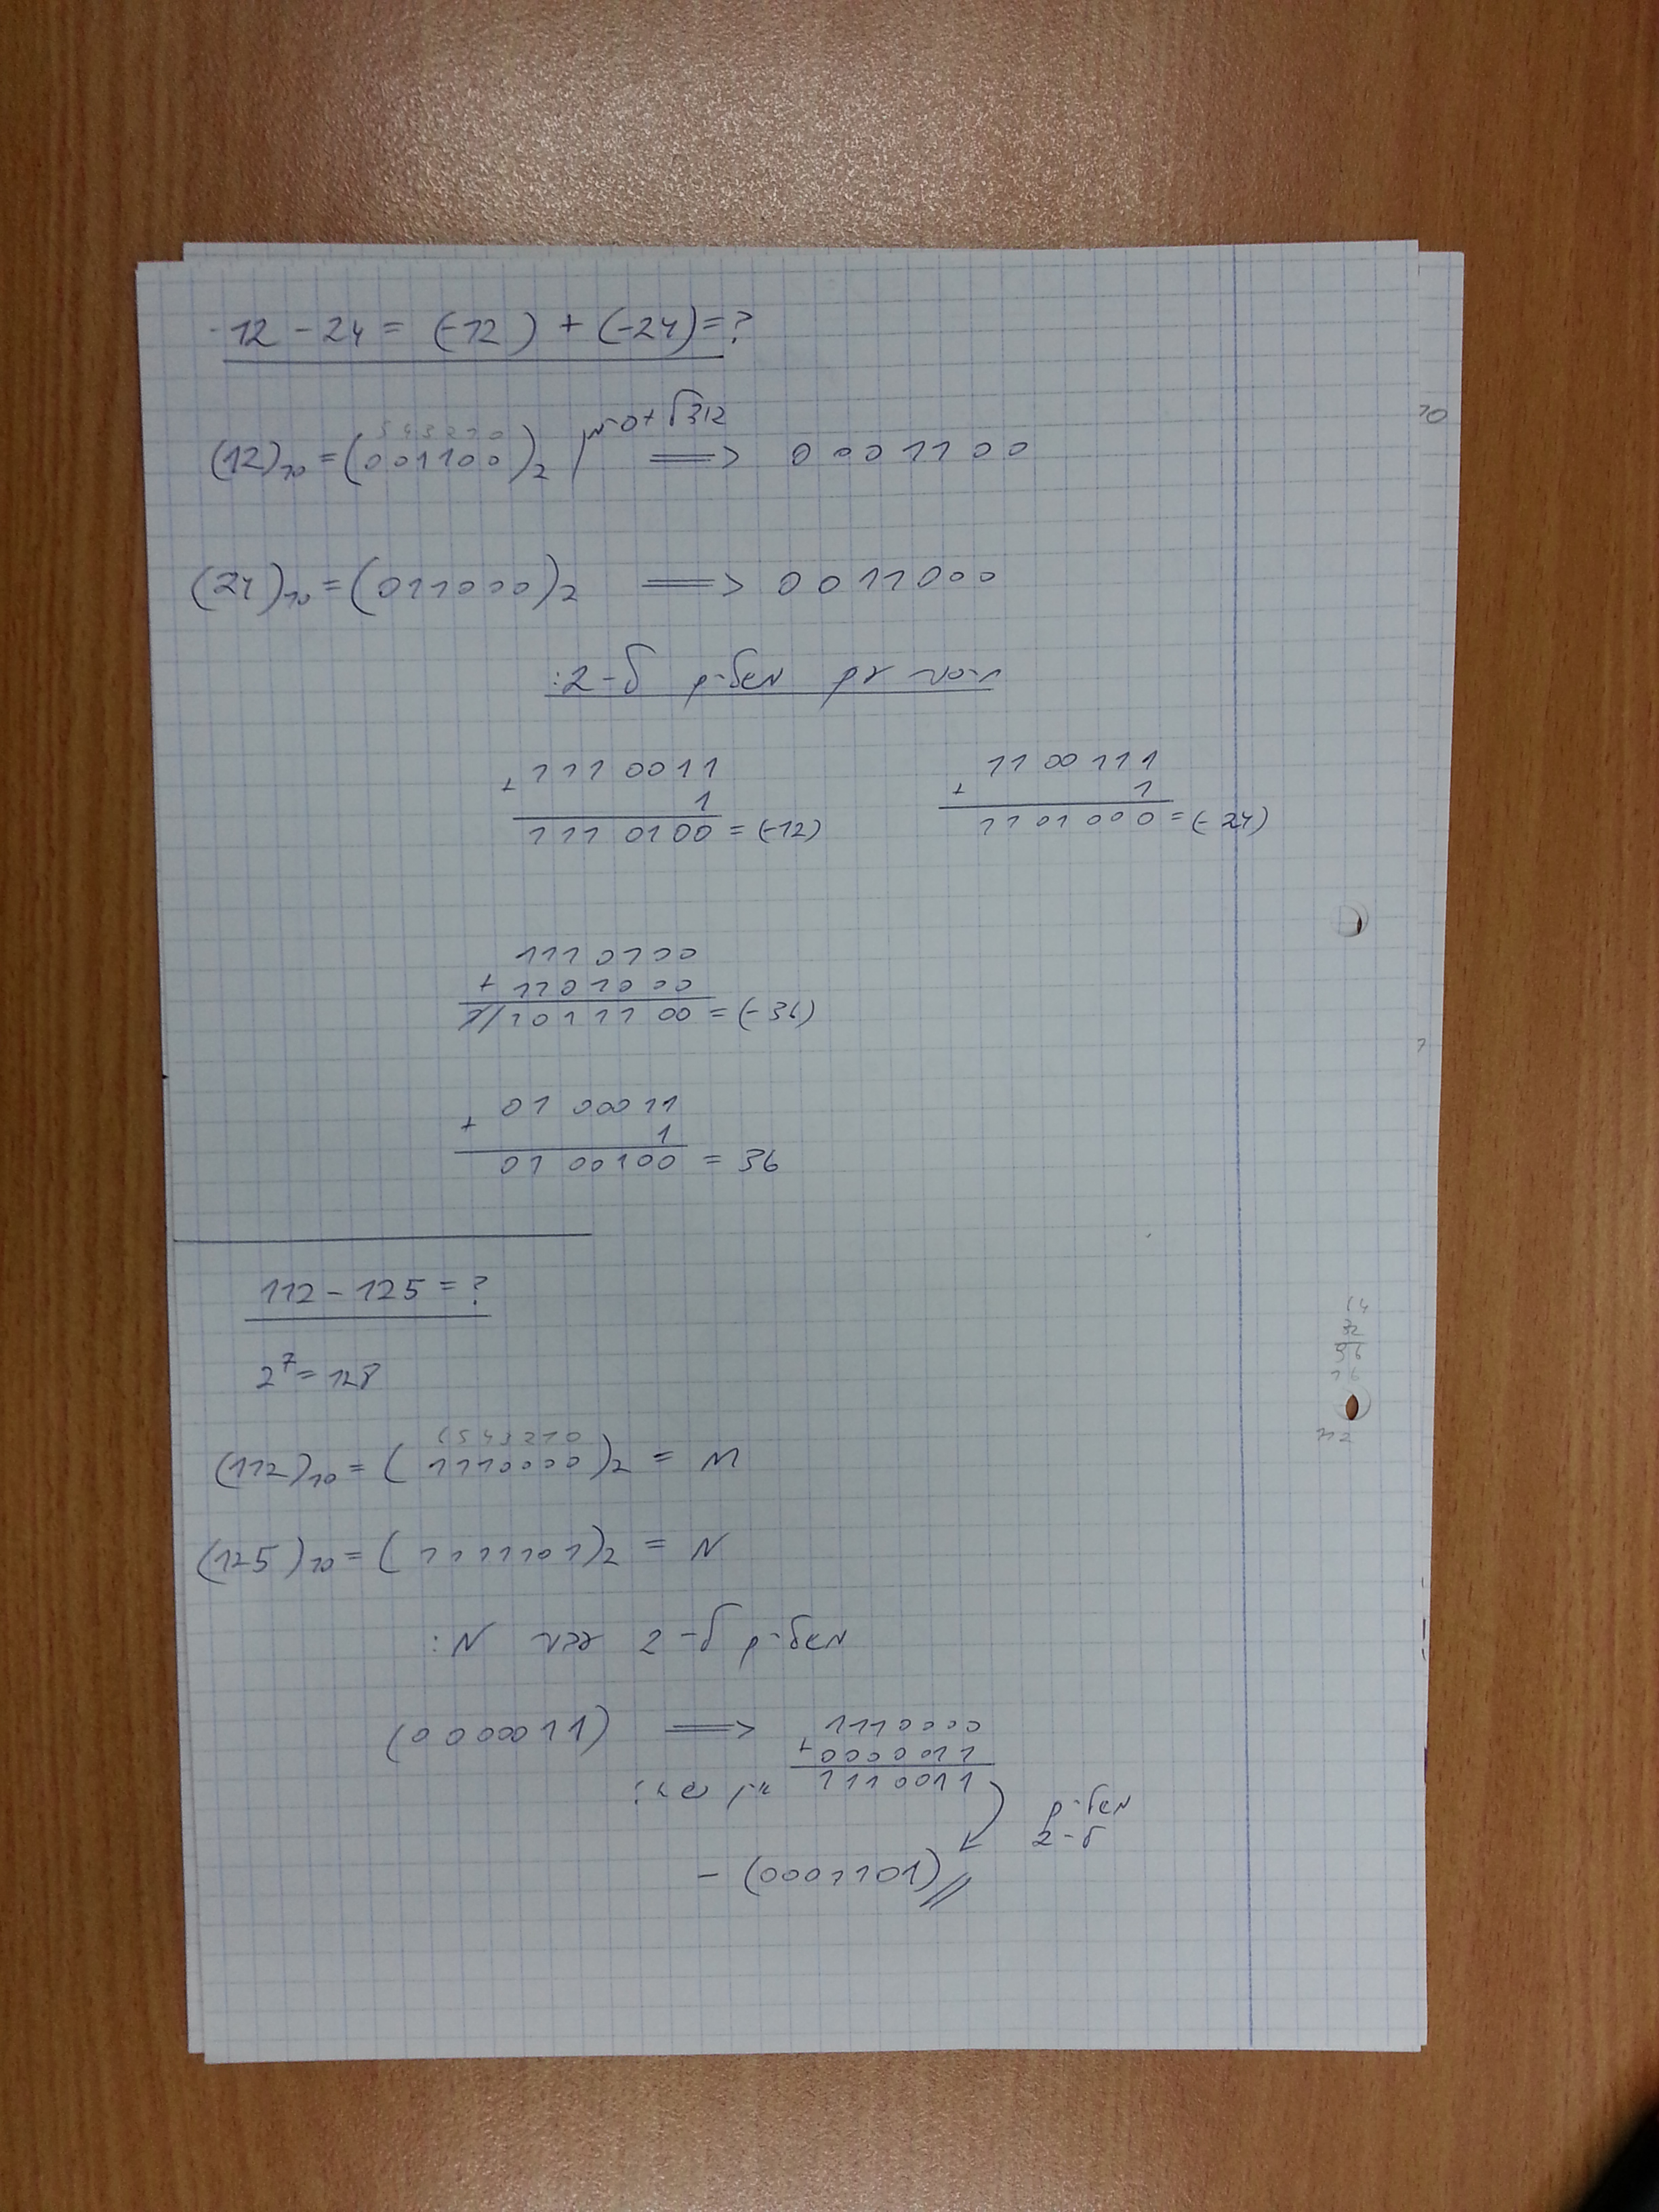 -12 - 24 = (-12) + (-24) = ?
5 4 3 2 1 0
(12)₁₀ = (001100)₂ ⟹ 0001100
(24)₁₀ = (011000)₂ ⟹ 0011000
נסמן עם משלים ל-2:
1110011
+ 1
1110100 = (-12)
1100111
+ 1
1101000 = (-24)
1110100
+ 1101000
1/1011100 = (-36)
0100011
+ 1
0100100 = 36
112 - 125 = ?
2⁷ = 128
6 5 4 3 2 1 0
(112)₁₀ = (1110000)₂ = M
(125)₁₀ = (1111101)₂ = N
משלים ל-2 עבור N:
(0000011) ⟹
1110000
+ 0000011
1110011
משלים
ל-2
- (0001101)
64
32
96
16
112